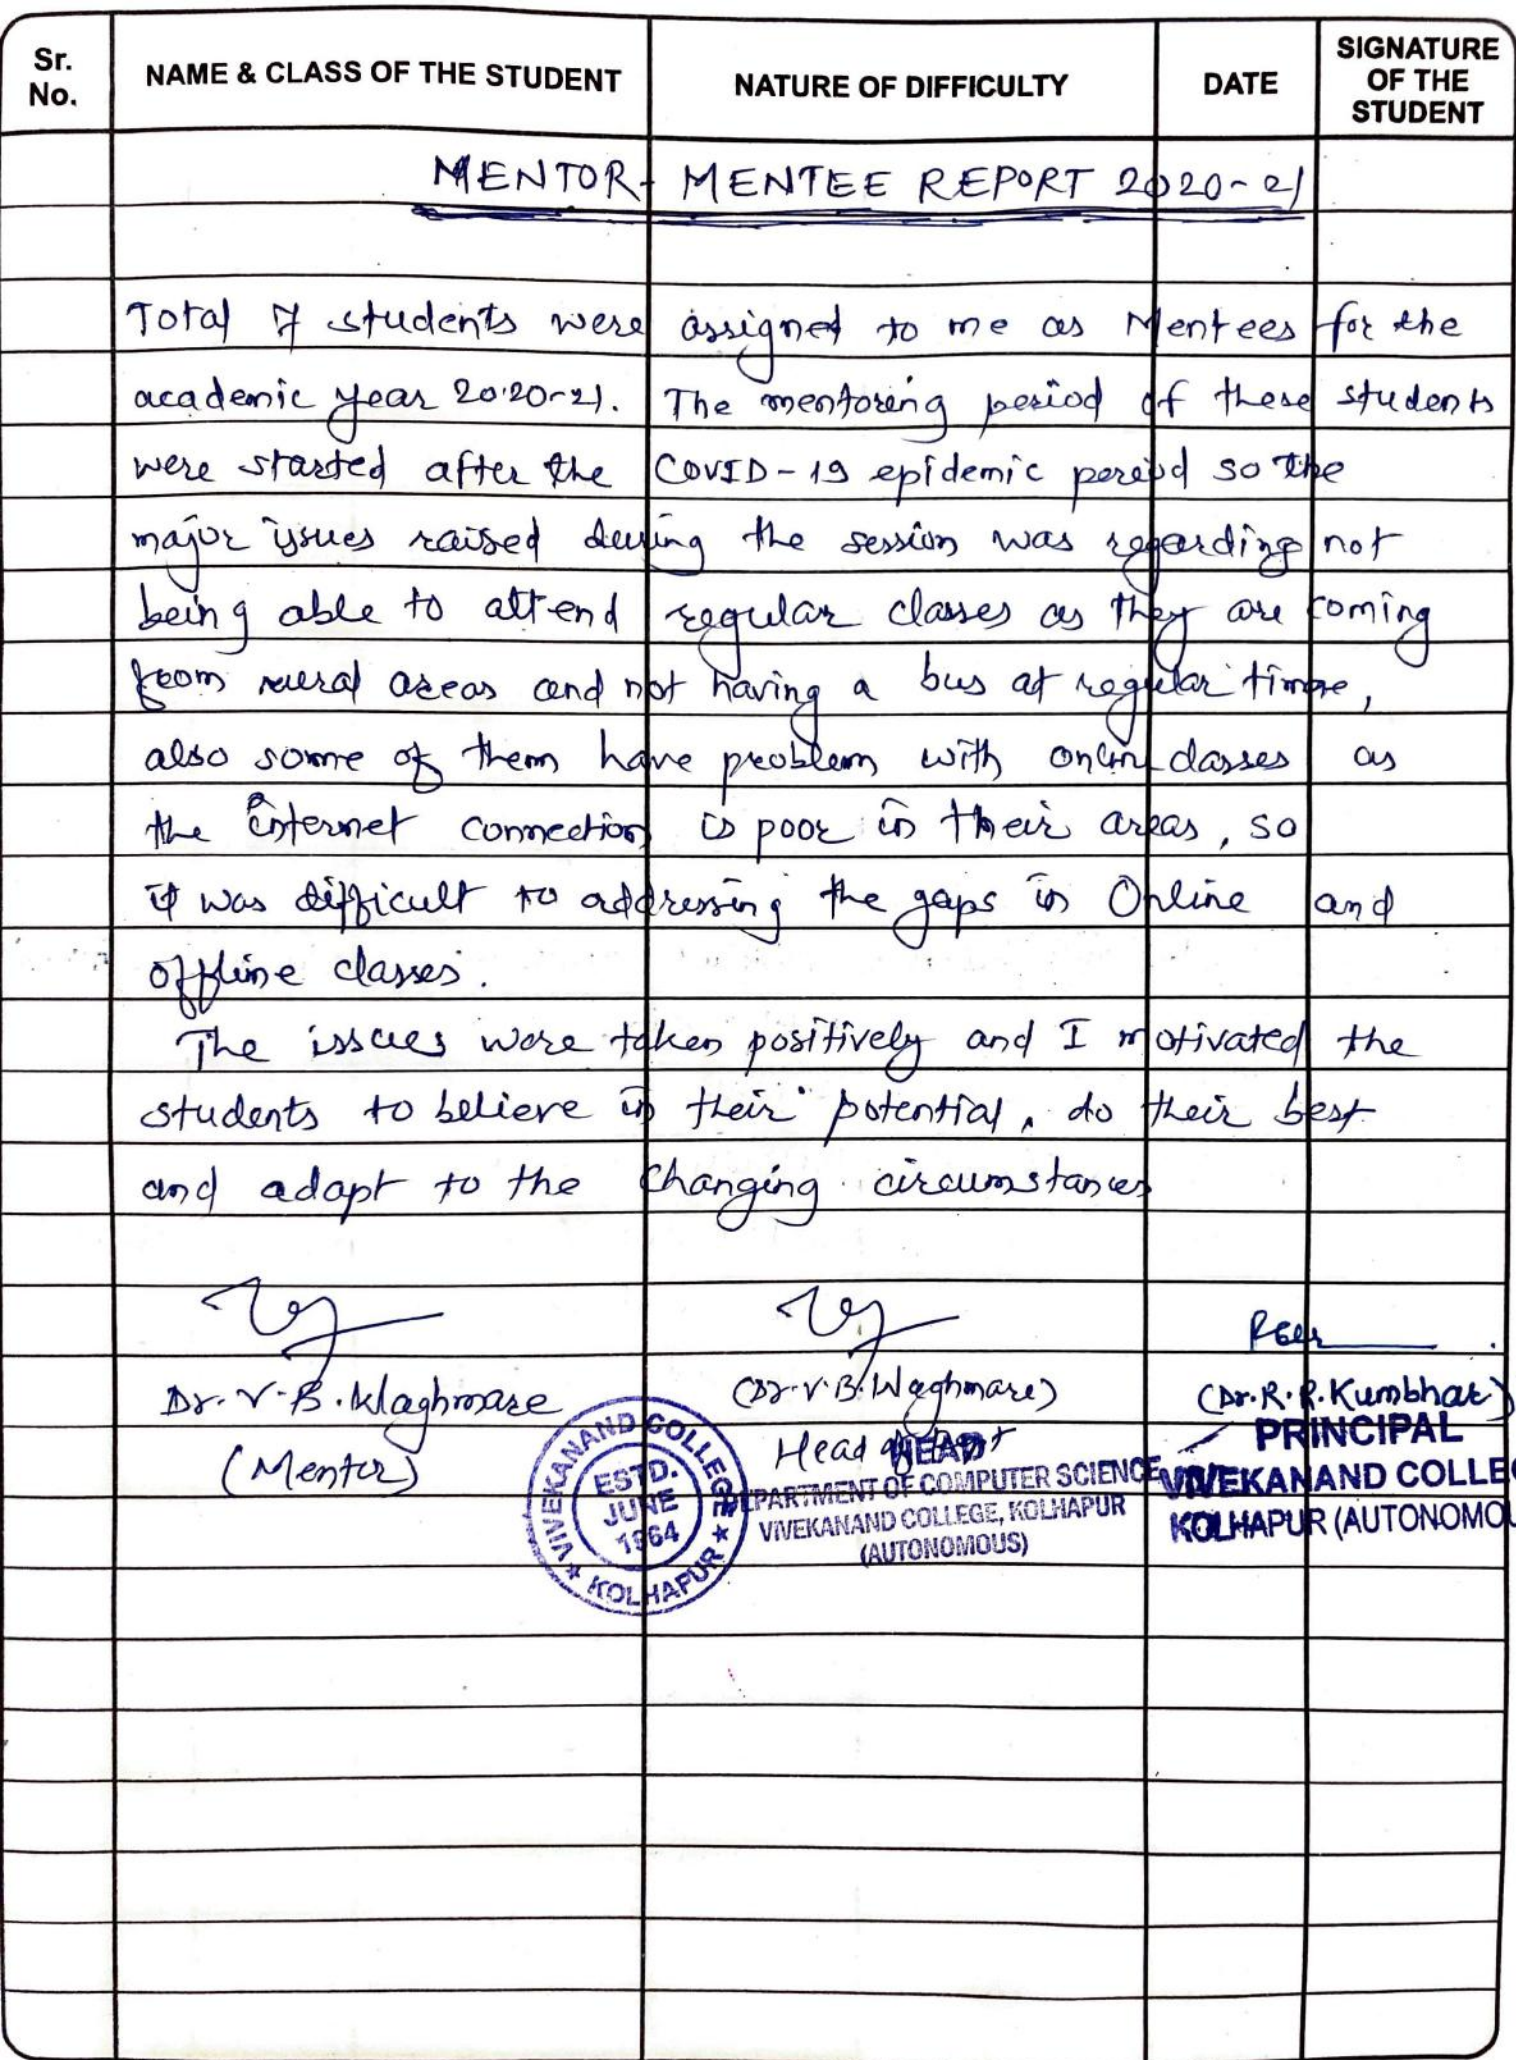 Sr. No.
NAME & CLASS OF THE STUDENT
NATURE OF DIFFICULTY
DATE
SIGNATURE OF THE STUDENT
MENTOR - MENTEE REPORT 2020-21
Total 7 students were assigned to me as Mentees for the
academic year 2020-21. The mentoring period of these students
were started after the COVID-19 epidemic period so the
major issues raised during the session was regarding not
being able to attend regular classes as they are coming
from rural areas and not having a bus at regular time,
also some of them have problem with onlin classes as
the internet connection is poor in their areas, so
it was difficult to addressing the gaps in Online and
offline classes.
The issues were taken positively and I motivated the
students to believe in their potential, do their best
and adapt to the changing circumstances
Dr. V. B. Waghmare
(Mentor)
(Dr. V. B. Waghmare)
Head of Dept
HEAD
DEPARTMENT OF COMPUTER SCIENCE
VIVEKANAND COLLEGE, KOLHAPUR
(AUTONOMOUS)
(Dr. R. R. Kumbhar)
PRINCIPAL
VIVEKANAND COLLE
KOLHAPUR (AUTONOMOU
VIVEKANAND COLLEGE
ESTD.
JUNE
1964
★ KOLHAPUR ★